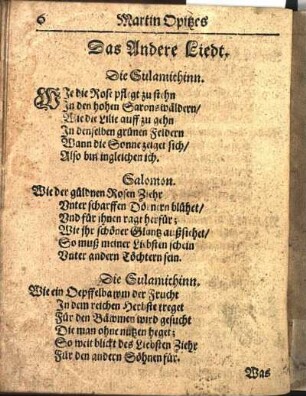 6 Martin Opitzes
Das Andere Liedt.
Die Sulamithinn.
WIe die Rose pflegt zu stehn
In den hohen Saronswäldern/
Wie die Lilie auff zu gehn
In denselben grünen Feldern
Wann die Sonne zeiget sich/
Also bin ingleichen ich.
Salomon.
Wie der güldnen Rosen Ziehr
Vnter scharffen Dörnern blühet/
Vnd für ihnen ragt herfür;
Wie ihr schöner Glantz außsihet/
So muß meiner Liebsten schein
Vnter andern Töchtern sein.
Die Sulamithinn.
Wie ein Oepffelbawm der Frucht
In dem reichen Herbste treget
Für den Bäwmen wird gesucht
Die man ohne nutzen heget;
So weit blickt des Liebsten Ziehr
Für den andern Söhnen für.
Was